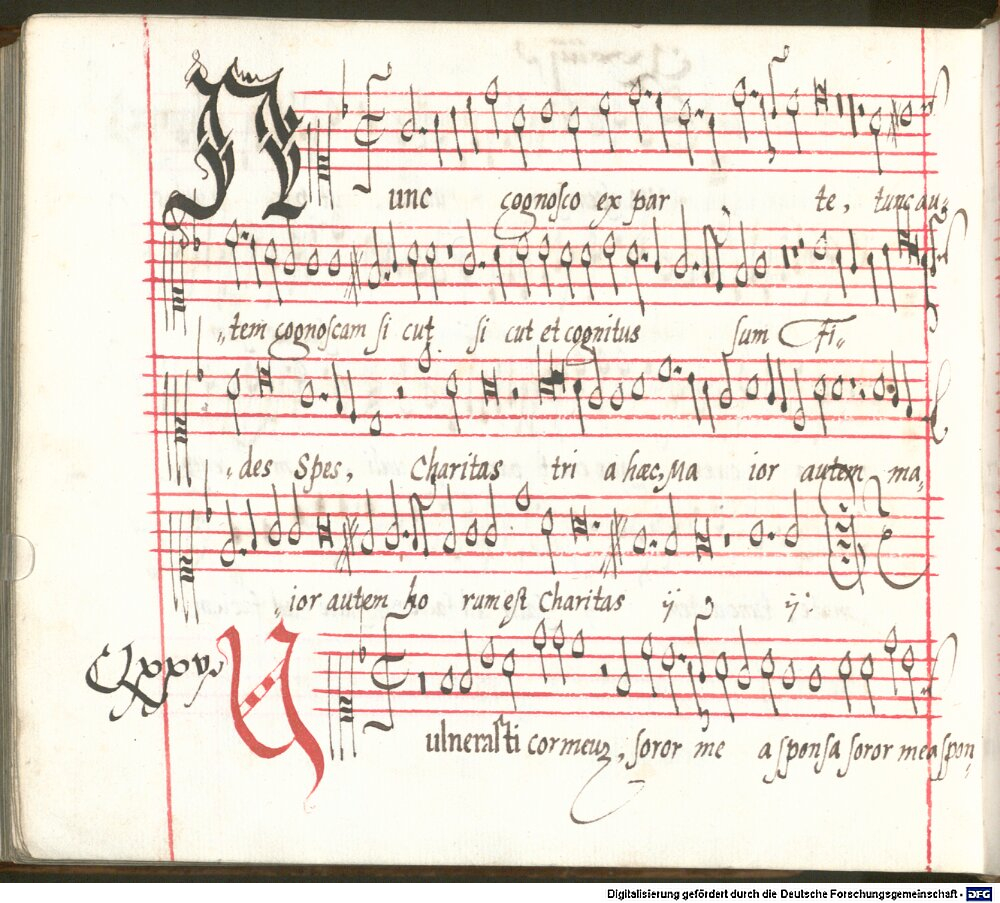 Nunc cognosco ex par te, tunc au⸗
tem cognoscam si cut si cut et cognitus sum Fi⸗
des Spes, Charitas tri a hæc, Ma ior autem ma⸗
ior autem ho rum est Charitas ij ij
Clxxv Vulnerasti cor meuz, soror me a sponsa soror mea spon⸗
Digitalisierung gefördert durch die Deutsche Forschungsgemeinschaft - DFG